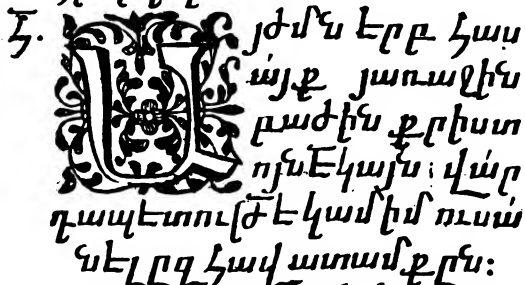 Հ. Այժմն երբ հաս
այք յառաջին
բաժին քրիստ
ոյնեկայն ։ վար
դապետութե կամիմ ուսա
նել ըզ հավատամքըն։